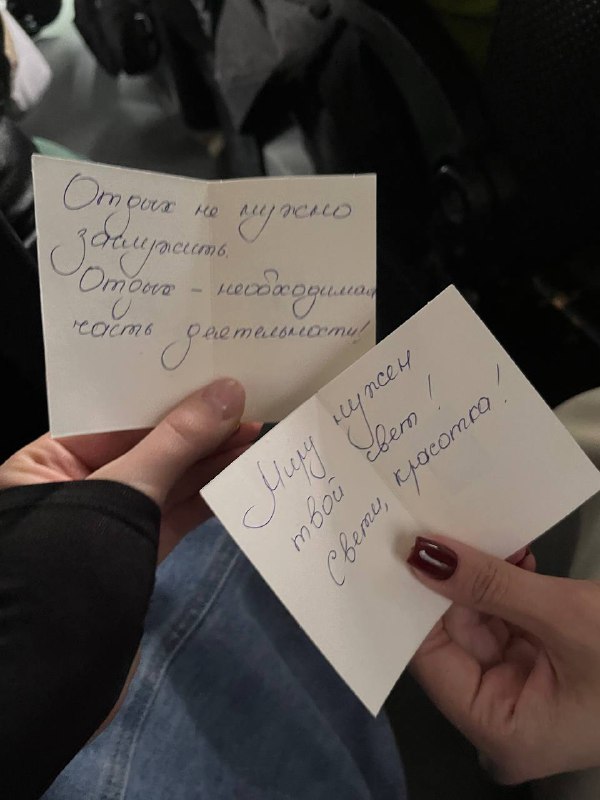 Отдых не нужно
заслужить.
Отдых - необходимая
часть деятельности!
Миру нужен
твой свет!
Свети, красотка!